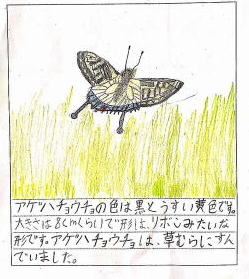 アゲハチョウチョの色は黒とうすい黄色です。
大きさは8cmくらいで形は、リボンみたいな
形です。アゲハチョウチョは、草むらにすん
でいました。